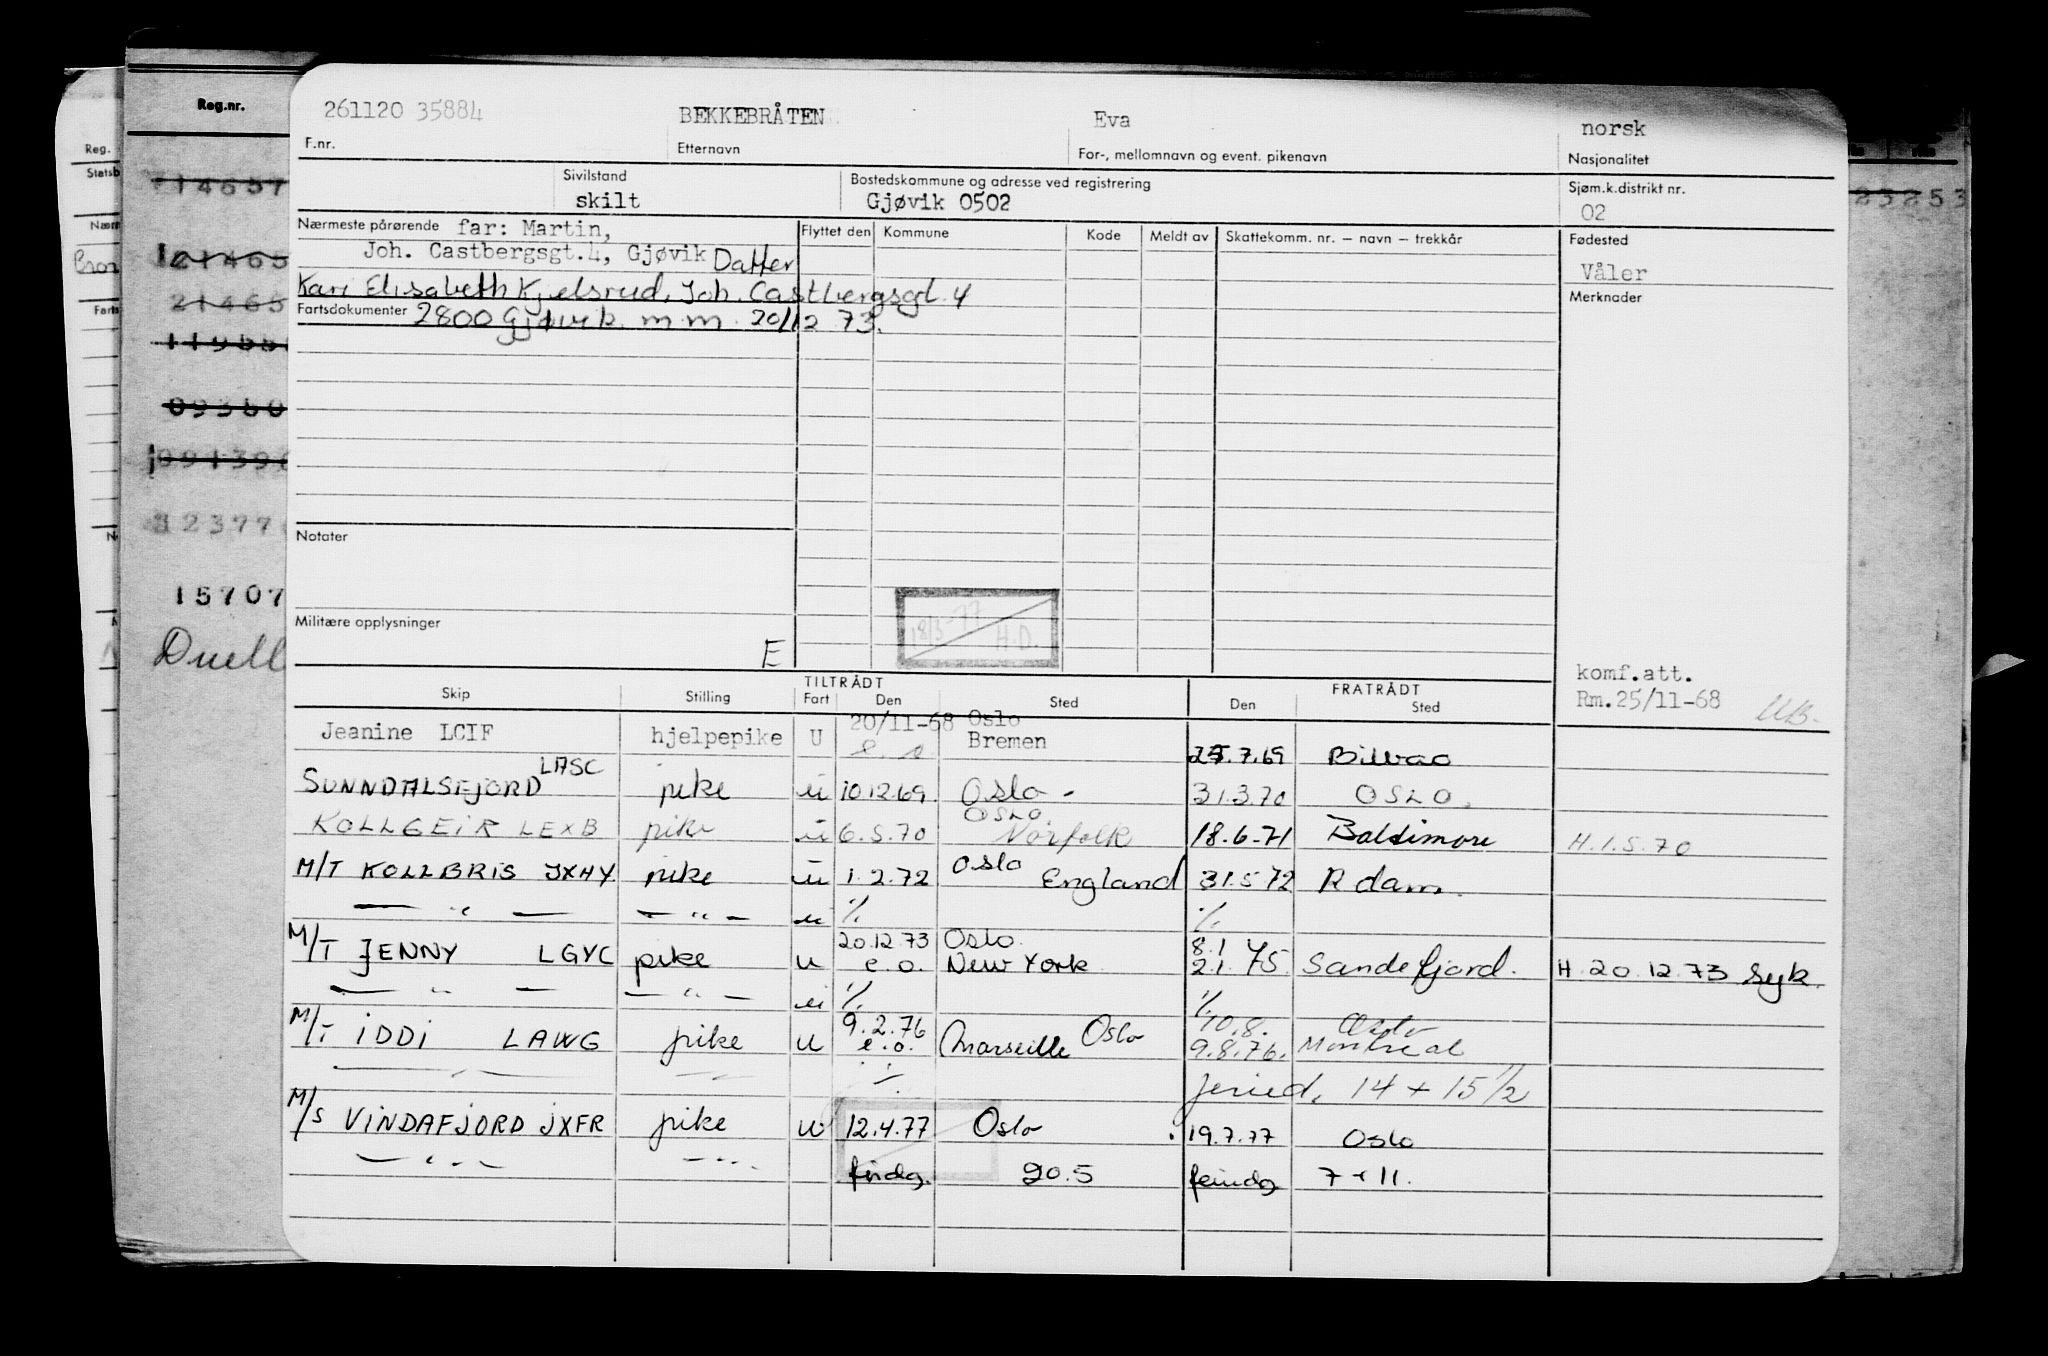 Reg.nr.
Reg.
261120 35884 BEKKEBRÅTEN Eva norsk
F.nr. Etternavn For-, mellomnavn og event. pikenavn Nasjonalitet
Sivilstand Bostedskommune og adresse ved registrering Sjøm.k.distrikt nr.
skilt Gjøvik 0502 02
Nærmeste pårørende far: Martin, Flyttet den Kommune Kode Meldt av Skattekomm. nr. – navn – trekkår Fødested
Joh. Castbergsgt.4, Gjøvik Datter Våler
Kari Elisabeth Kjelsrud, Joh. Castbergsgt. 4 Merknader
Fartsdokumenter 2800 Gjøvik. m.m. 20/12 73.
15707
Notater
Militære opplysninger
18/3-77 H.D.
E
Duell
komf.att.
Rm.25/11-68
TILTRÅDT FRATRÅDT
Skip Stilling Fart Den Sted Den Sted
20/11-68 Oslo
Jeanine LCIF hjelpepike U e.o. Bremen .7.69 Bilbao
SUNNDALSFJORD LASC pike u 10.12.69. Oslo - 31.3.70 OSLO.
OSLO
KOLLGEIR LEXB pike u 6.5.70 Norfolk 18.6-71 Baltimore H.1.5.70
M/T KOLLBRIS JXHY pike u 1.2.72 Oslo England 31.5.72 R dam.
— " — — " — u % %
20.12.73 Oslo. 8.1
M/T JENNY LGYC pike u e.o. New York 2.1 75. Sandefjord. H. 20.12.73 syk.
— " — — " — u % %
9.2.76 Oslo 10.8. Oslo
M/T IDDI LAWG pike u e.o. Marseille 9.8.76. Montreal
14 + 15 1/2
M/S VINDAFJORD JXFR pike u 12.4.77 Oslo 19.7.77 Oslo
— " — — " — 20.5 7 + 11.